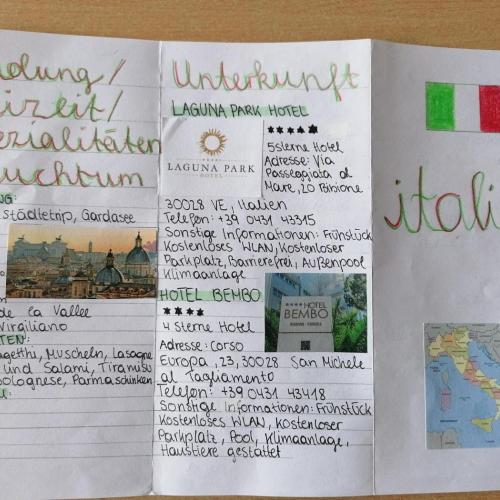 dung/
eizeit/
ezialitäten
auchtum
G:
städtetrip, Gardasee
de la Vallee
Virgiliano
TEN:
agetthi, Muscheln, Lasagne
und Salami, Tiramisu
bolognese, Parmaschinken
Unterkunft
LAGUNA PARK HOTEL
LAGUNA PARK
HOTEL
5sterne Hotel
Adresse: Via
Passeggiata al
Mare, 20 Bibione
30028 VE, Italien
Telefon: +39 0431 43315
Sonstige Informationen: Frühstück
Kostenloses WLAN, Kostenloser
Parkplatz, Barrierefrei, Außenpool
Klimaanlage
HOTEL BEMBO
HOTEL
BEMBO
4 Sterne Hotel
Adresse: Corso
Europa, 23, 30028 San Michele
al Tagliamento
Telefon: +39 0431 43418
Sonstige Informationen: Frühstück
Kostenloses WLAN, Kostenloser
Parkplatz, Pool, Klimaanlage,
Haustiere gestattet
itali